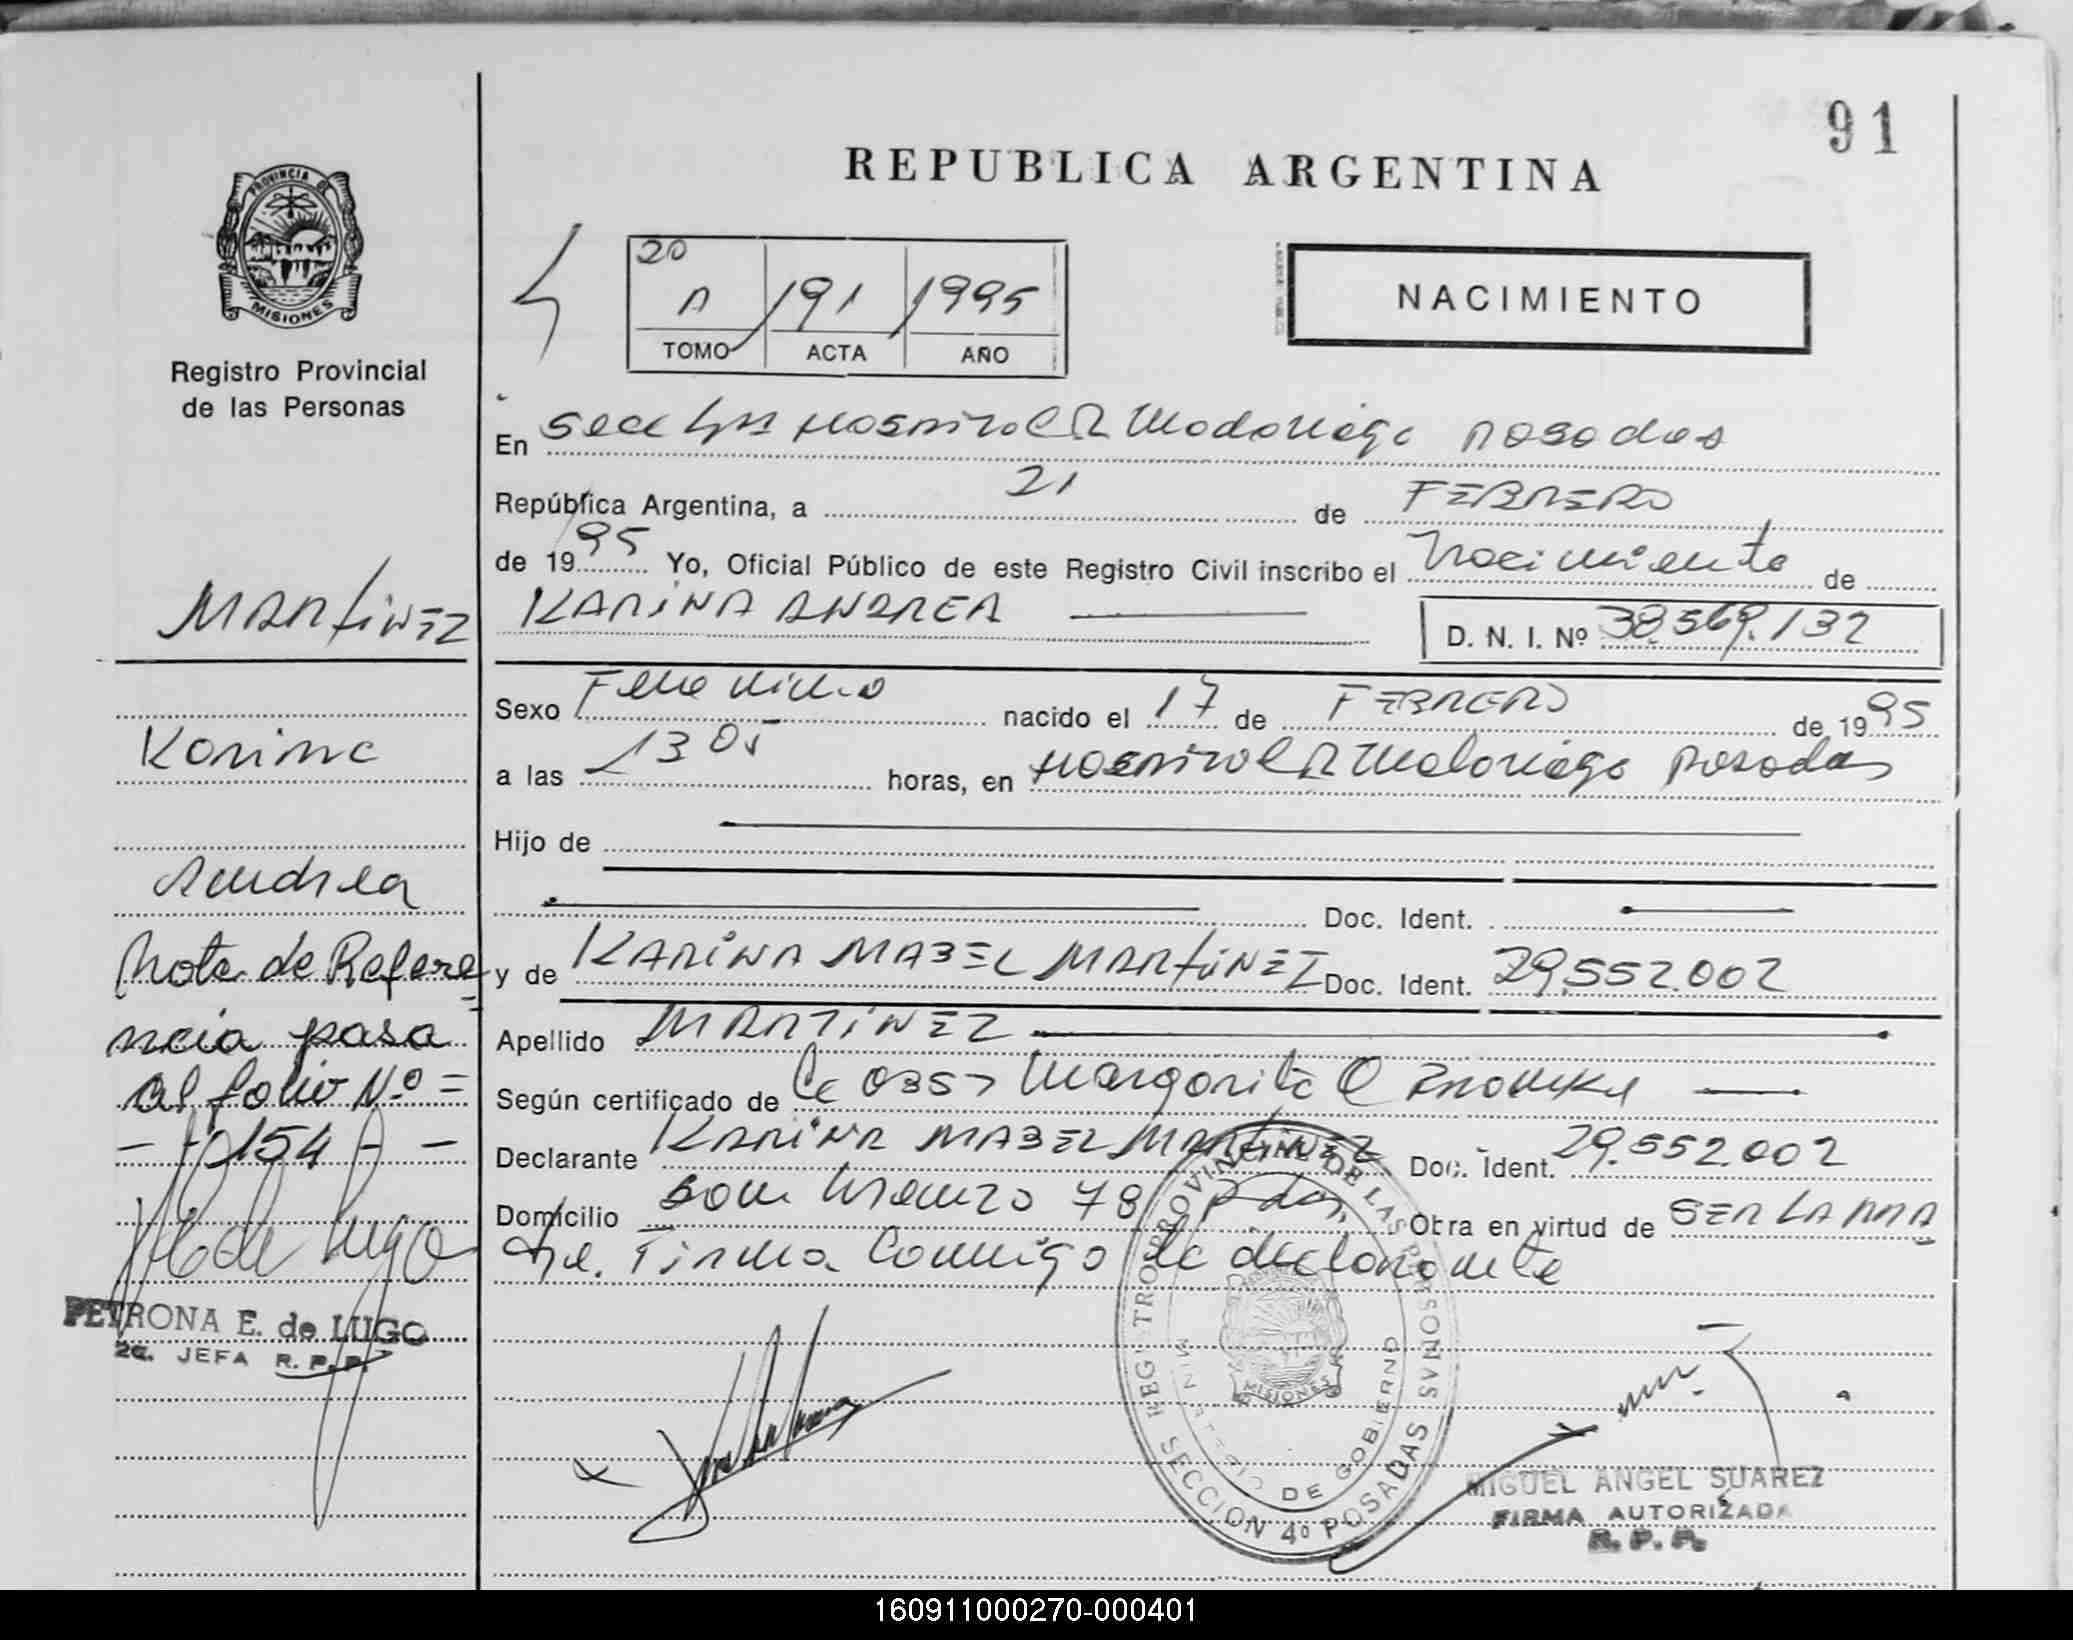 91
REPUBLICA ARGENTINA
PROVINCIA DE
MISIONES
Registro Provincial
de las Personas
20
A 191 1995
TOMO ACTA AÑO
NACIMIENTO
En Secc Hospital R Madariaga Posadas
República Argentina, a 21 de FEBRERO
de 1995 Yo, Oficial Público de este Registro Civil inscribo el Nacimiento de
KARINA ANDREA D. N. I. Nº 38.569.132
MARTINEZ
Karina
Andrea
Nota de Refere
ncia pasa
al folio Nº =
- - 154 - -
PETRONA E. de LUGO
2a. JEFA R. P. P.
Sexo Femenino nacido el 17 de FEBRERO de 1995
a las 13 05 horas, en Hospital R Madariaga Posadas
Hijo de
Doc. Ident.
y de KARINA MABEL MARTINEZ Doc. Ident. 29.552.002
Apellido MARTINEZ
Según certificado de Margarita
Declarante KARINA MABEL MARTINEZ Doc. Ident. 29.552.002
Domicilio San Lorenzo 78 Pdas. Obra en virtud de SER LA MA
dre. Firma Conmigo la declarante
REG. PROVINCIAL DE LAS PERSONAS
MINISTERIO DE GOBIERNO
MISIONES
SECCION 4º POSADAS
MIGUEL ANGEL SUAREZ
FIRMA AUTORIZADA
R. P. P.
160911000270-000401